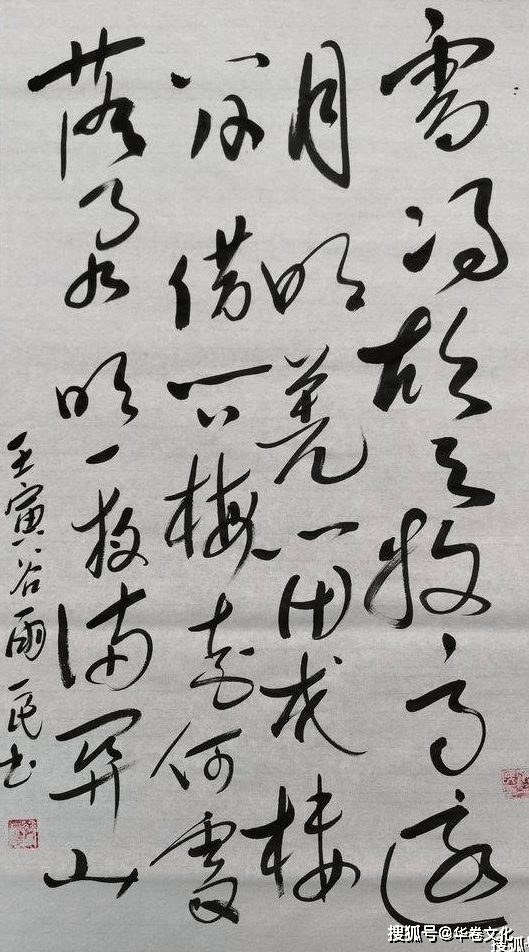 雪净胡天牧马还
月明羌笛戍楼
间借问梅花何处
落风吹一夜满关山
壬寅谷雨一民书
搜狐号@华卷文化
搜狐